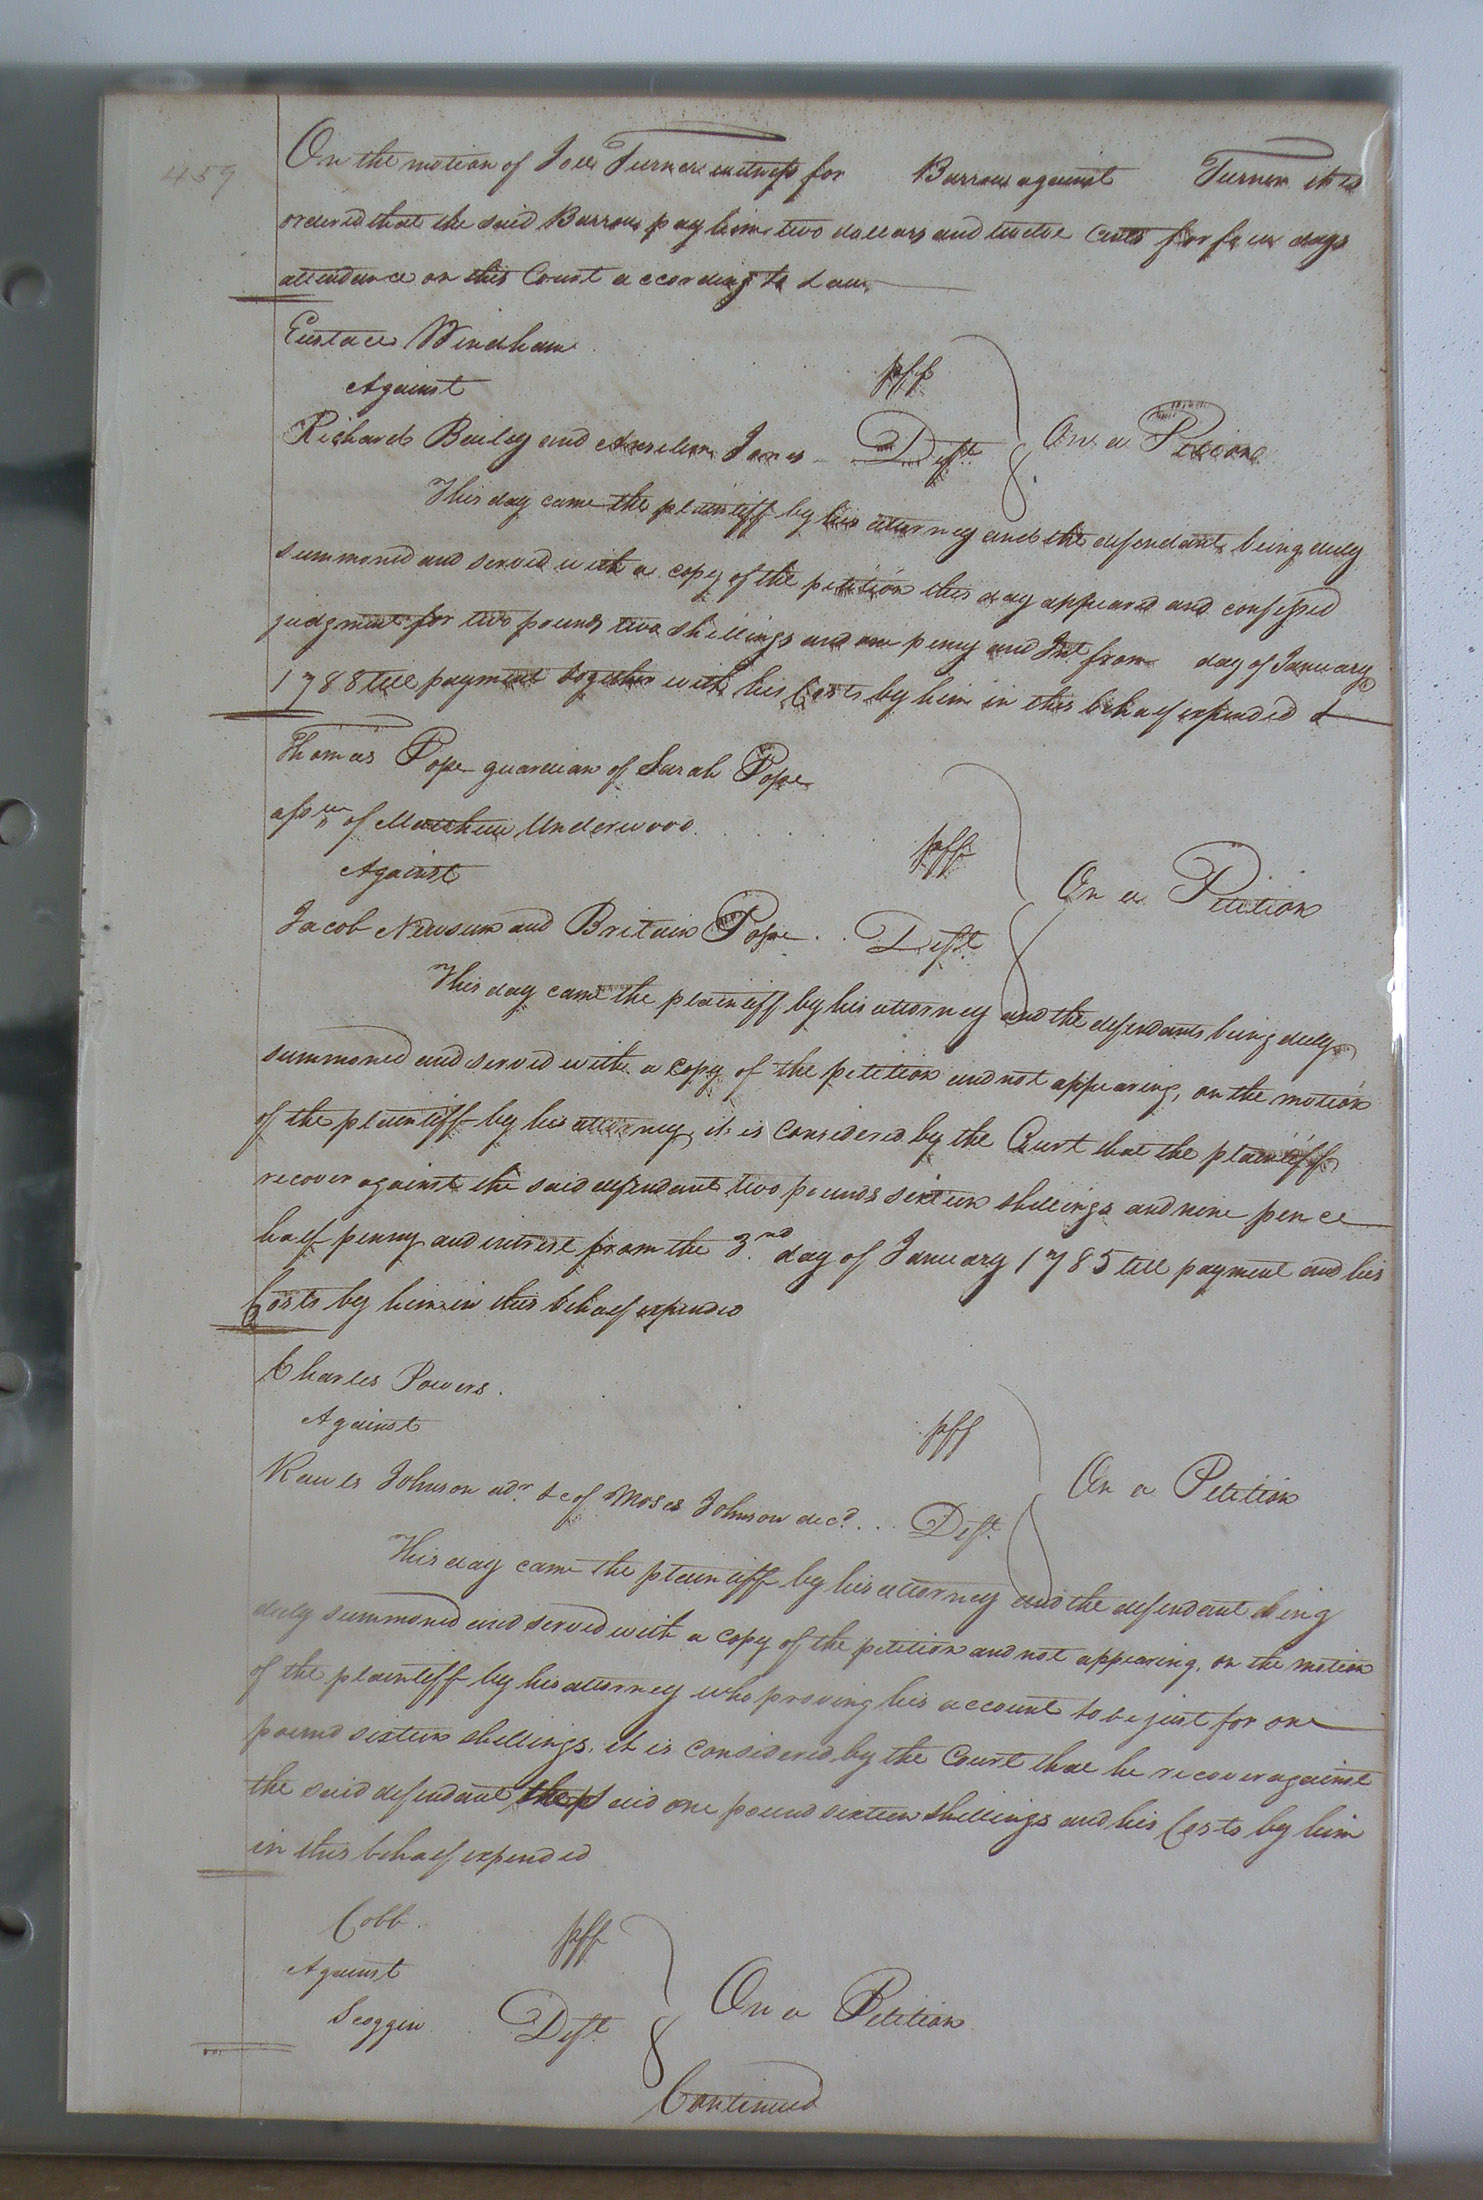 459
On the motion of Joel Turner witness for Barrow against Turner it is
ordered that the said Barrow pay him two dollars and twelve Cents for four days
attendance on this Court according to Law.
Eustace Windham
Against
pff
Richard Bailey and Jones Deft. On a Petition
This day came the plaintiff by his attorney and the defendants being duly
summoned and served with a copy of the petition this day appeared and confessed
judgment for two pounds two shillings and one penny and Int. from day of January
1788 till payment together with his Costs by him in this behalf expended &
Thomas Pope guardian of Sarah Pope
assee. of Matthew Underwood.
pff
Against
On a Petition
Jacob Newsum and Britain Pope . . Deft.
This day came the plaintiff by his attorney and the defendants being duly
summoned and served with a copy of the petition and not appearing, on the motion
of the plaintiff by his attorney, it is Considered by the Court that the plaintiff
recover against the said defendant two pounds sixteen shillings and nine pence
half penny and interest from the 3.nd day of January 1785 till payment and his
Costs by him in this behalf expended
Charles Powers.
Against
pff
On a Petition
Rawls Johnson adr. &c of Moses Johnson decd. . . Deft.
This day came the plaintiff by his attorney and the defendant being
duly summoned and served with a copy of the petition and not appearing, on the motion
of the plaintiff by his attorney who proving his account to be just for one
pound sixteen shillings, it is Considered by the Court that he recover against
the said defendant the said one pound sixteen shillings and his Costs by him
in this behalf expended
Cobb. pff
Against
On a Petition
Scoggin Deft.
Continued